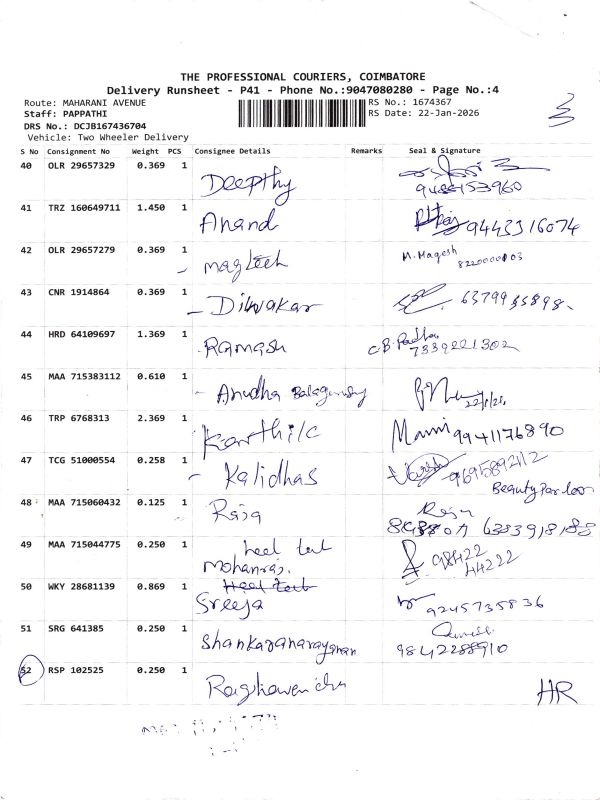 THE PROFESSIONAL COURIERS, COIMBATORE
Delivery Runsheet - P41 - Phone No.:9047080280 - Page No.:4
Route: MAHARANI AVENUE
RS No.: 1674367
Staff: PAPPATHI
RS Date: 22-Jan-2026
DRS No.: DCJB167436704
Vehicle: Two Wheeler Delivery
S No Consignment No Weight PCS Consignee Details Remarks Seal & Signature
40 OLR 29657329 0.369 1 Deepthy
41 TRZ 160649711 1.450 1 Anand 9443316074
42 OLR 29657279 0.369 1 M. Magesh
43 CNR 1914864 0.369 1 - Diwakar
44 HRD 64109697 1.369 1 Ramash C B Padha 7339221302
45 MAA 715383112 0.610 1 - Anudha
46 TRP 6768313 2.369 1 Mani 9941176890
47 TCG 51000554 0.258 1 - Kalidhas
Beauty Parloor
48 MAA 715060432 0.125 1 Raja Raja
49 MAA 715044775 0.250 1 Mohanraj. 98422
44222
50 WKY 28681139 0.869 1 Sreeja 9245735836
51 SRG 641385 0.250 1 Shankaranarayanan 9842288910
52 RSP 102525 0.250 1 Raghavendra HR